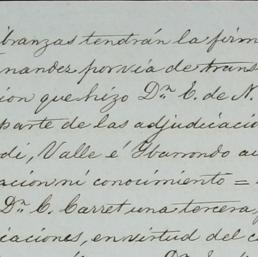 branzas tendrán la firm
nandez por via de trans
ion que hizo Dn. E. de N.
parte de las adjudicacio
di, Valle é Ybarrondo au
acion ni conocimiento =
Dn. C. Carret una tercera
iaciones, en virtud del c